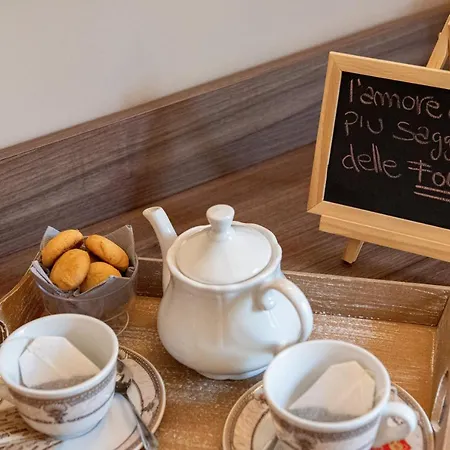 l'amore
PIU sagg
delle Fol